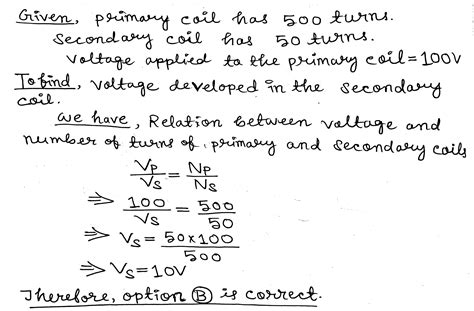 Given, primary coil has 500 turns.
Secondary coil has 50 turns.
Voltage applied to the primary coil = 100V
To find, voltage developed in the secondary
coil.
We have, Relation between voltage and
number of turns of primary and secondary coils
Vp/Vs = Np/Ns
⇒ 100/Vs = 500/50
⇒ Vs = 50×100/500
⇒ Vs = 10V
Therefore, option Ⓑ is correct.